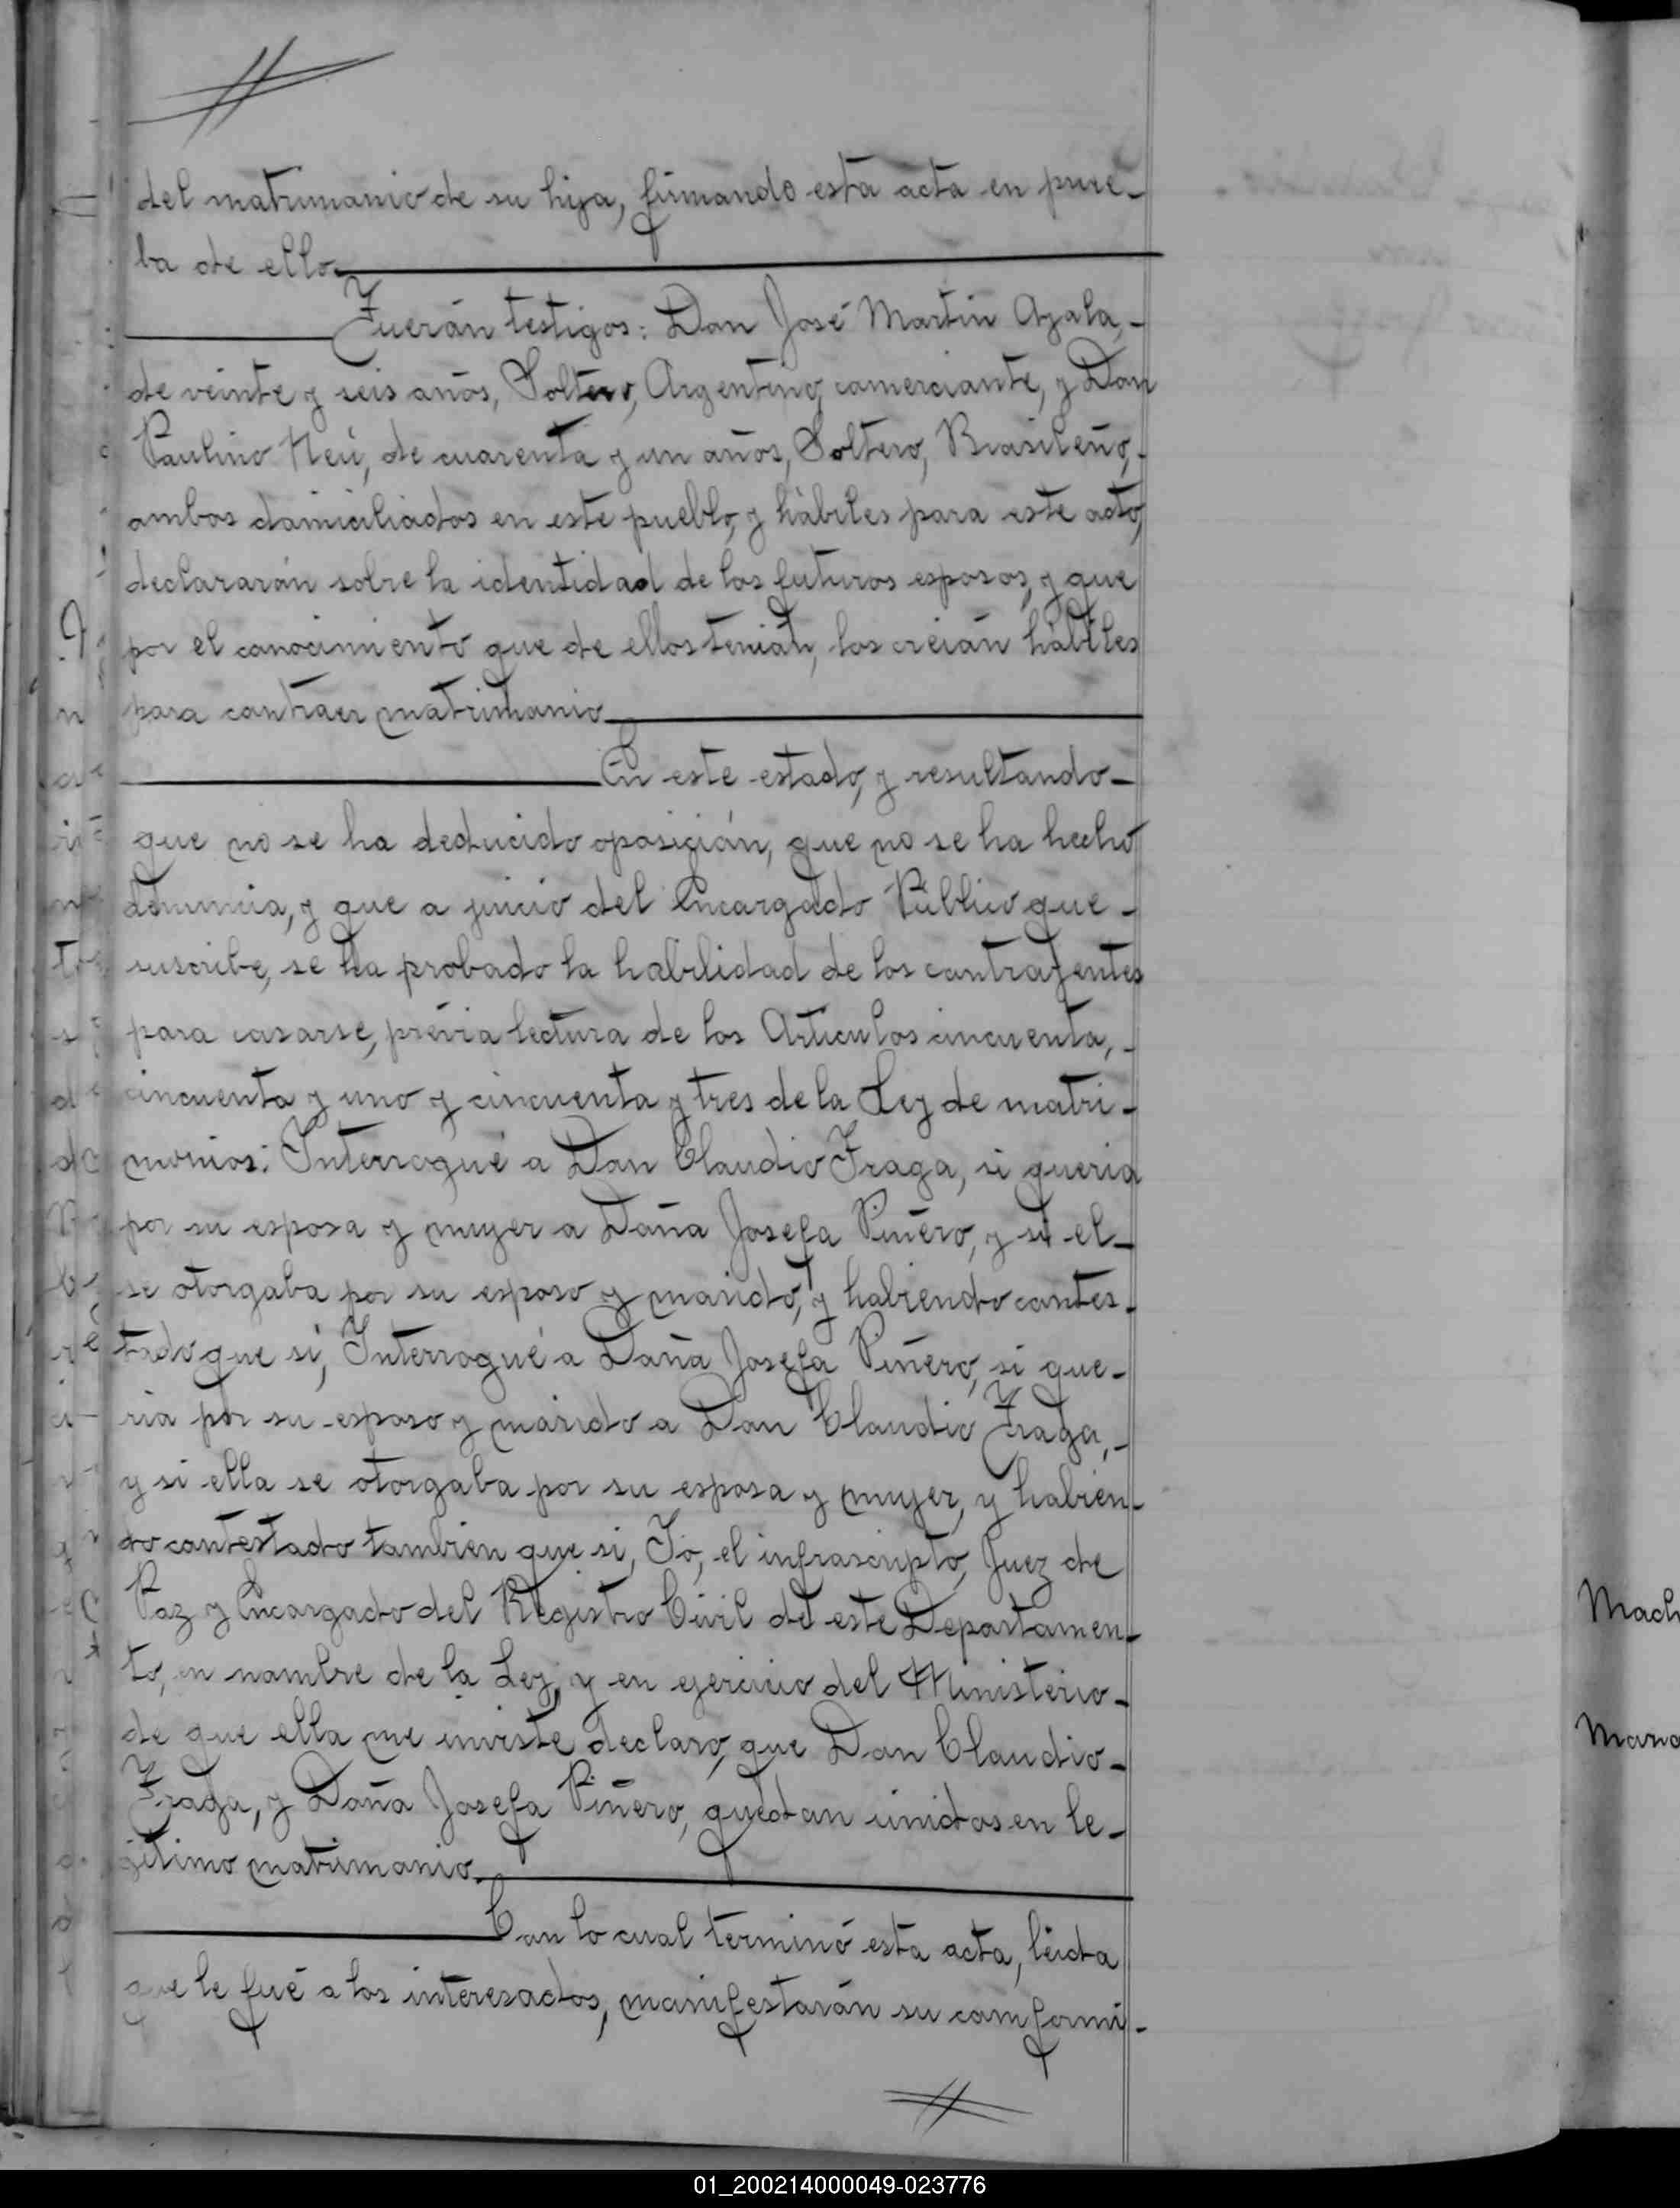 del matrimonio de su hija, firmando esta acta en prue-
ba de ello.
Fuerán testigos: Don José Martin Ayala,-
de veinte y seis años, Soltero, Argentino, comerciante, y Don
Paulino Neú, de cuarenta y un años, Soltero, Brasileño,-
ambos domiciliados en este pueblo, y hábiles para este acto,
declararán sobre la identidad de los futuros esposos, y que
por el conocimiento que de ellos tenián, los creián hábiles
para contraer matrimonio
En este estado, y resultando-
que no se ha deducido oposición, que no se ha hecho
denuncia, y que a juicio del Encargado Público que-
suscribe, se ha probado la habilidad de los contrayentes
para casarse, prévia lectura de los Articulos cincuenta,-
cincuenta y uno y cincuenta y tres de la Ley de matri-
monios: Interrogué a Don Claudio Fraga, si queria
por su esposa y mujer a Doña Josefa Piñero, y si el-
se otorgaba por su esposo y marido, y habiendo contes-
tado que si, Interrogué a Doña Josefa Piñero, si que-
ria por su esposo y marido a Don Claudio Fraga,-
y si ella se otorgaba por su esposa y mujer, y habien-
do contestado tambien que si, Yo, el infrascripto, Juez de
Paz y Encargado del Registro Civil de este Departamen-
to, en nombre de la Ley, y en ejercicio del Ministerio-
de que ella me inviste declaro, que Don Claudio-
Fraga, y Doña Josefa Piñero, quedan unidos en le-
gitimo matrimonio.
Con lo cual terminó esta acta, léida
que le fué a los interesados, manifestarán su comformi-
Mach
Mano
01_200214000049-023776